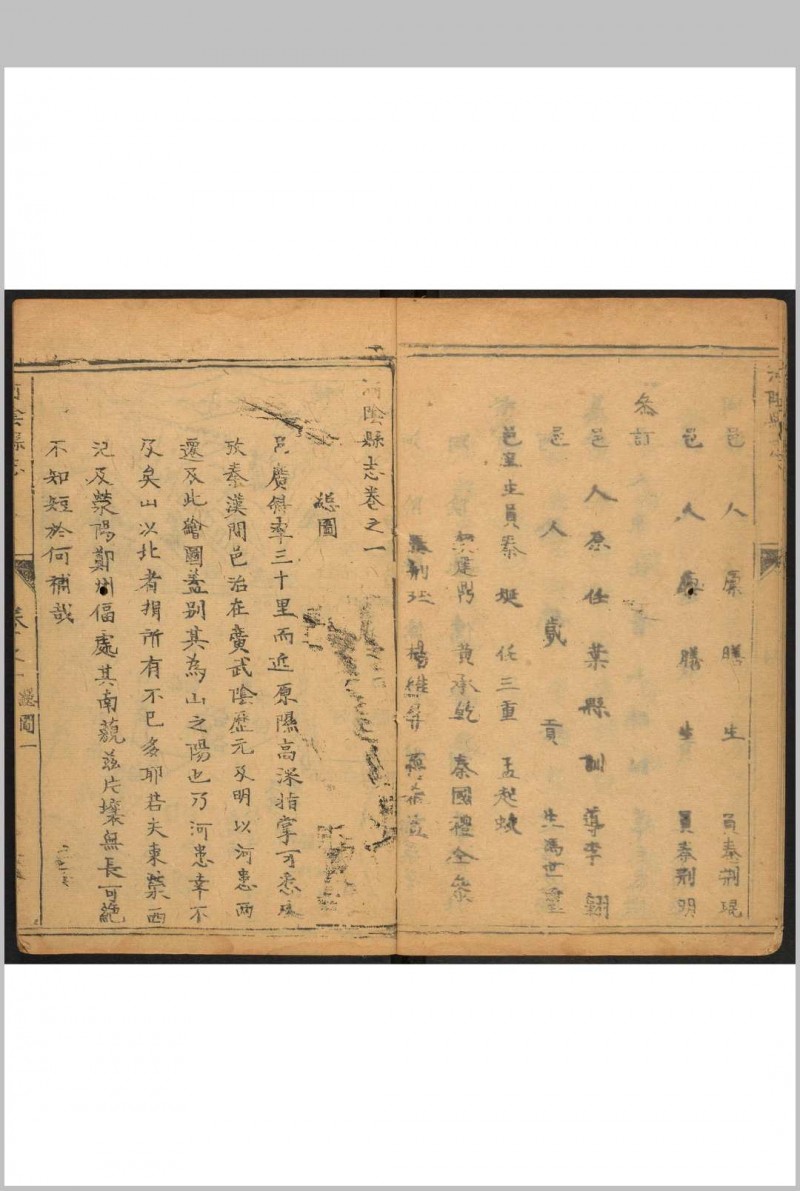 邑人廩膳生員秦荆琨
邑人廩膳生員秦荆明
叅訂
邑人原任葉縣訓導李翶
邑人貳貢生馮世
邑童生員秦珽任三重孟起蛟
黄承乾秦國禮全
楊維
河陰縣志卷之一
總圖
邑廣僅率三十里而近原隰高深指掌可悉
攷秦漢間邑治在廣武陰歷元及明以河患兩
遷及此繪圖蓋别其為山之陽也乃河患幸不
及矣山以北者捐所有不已多耶若夫東滎西
汜及滎陽鄭州偪處其南藐兹片壤無長可絶
不知短於何補哉
河陰縣志
卷之一
總圖一